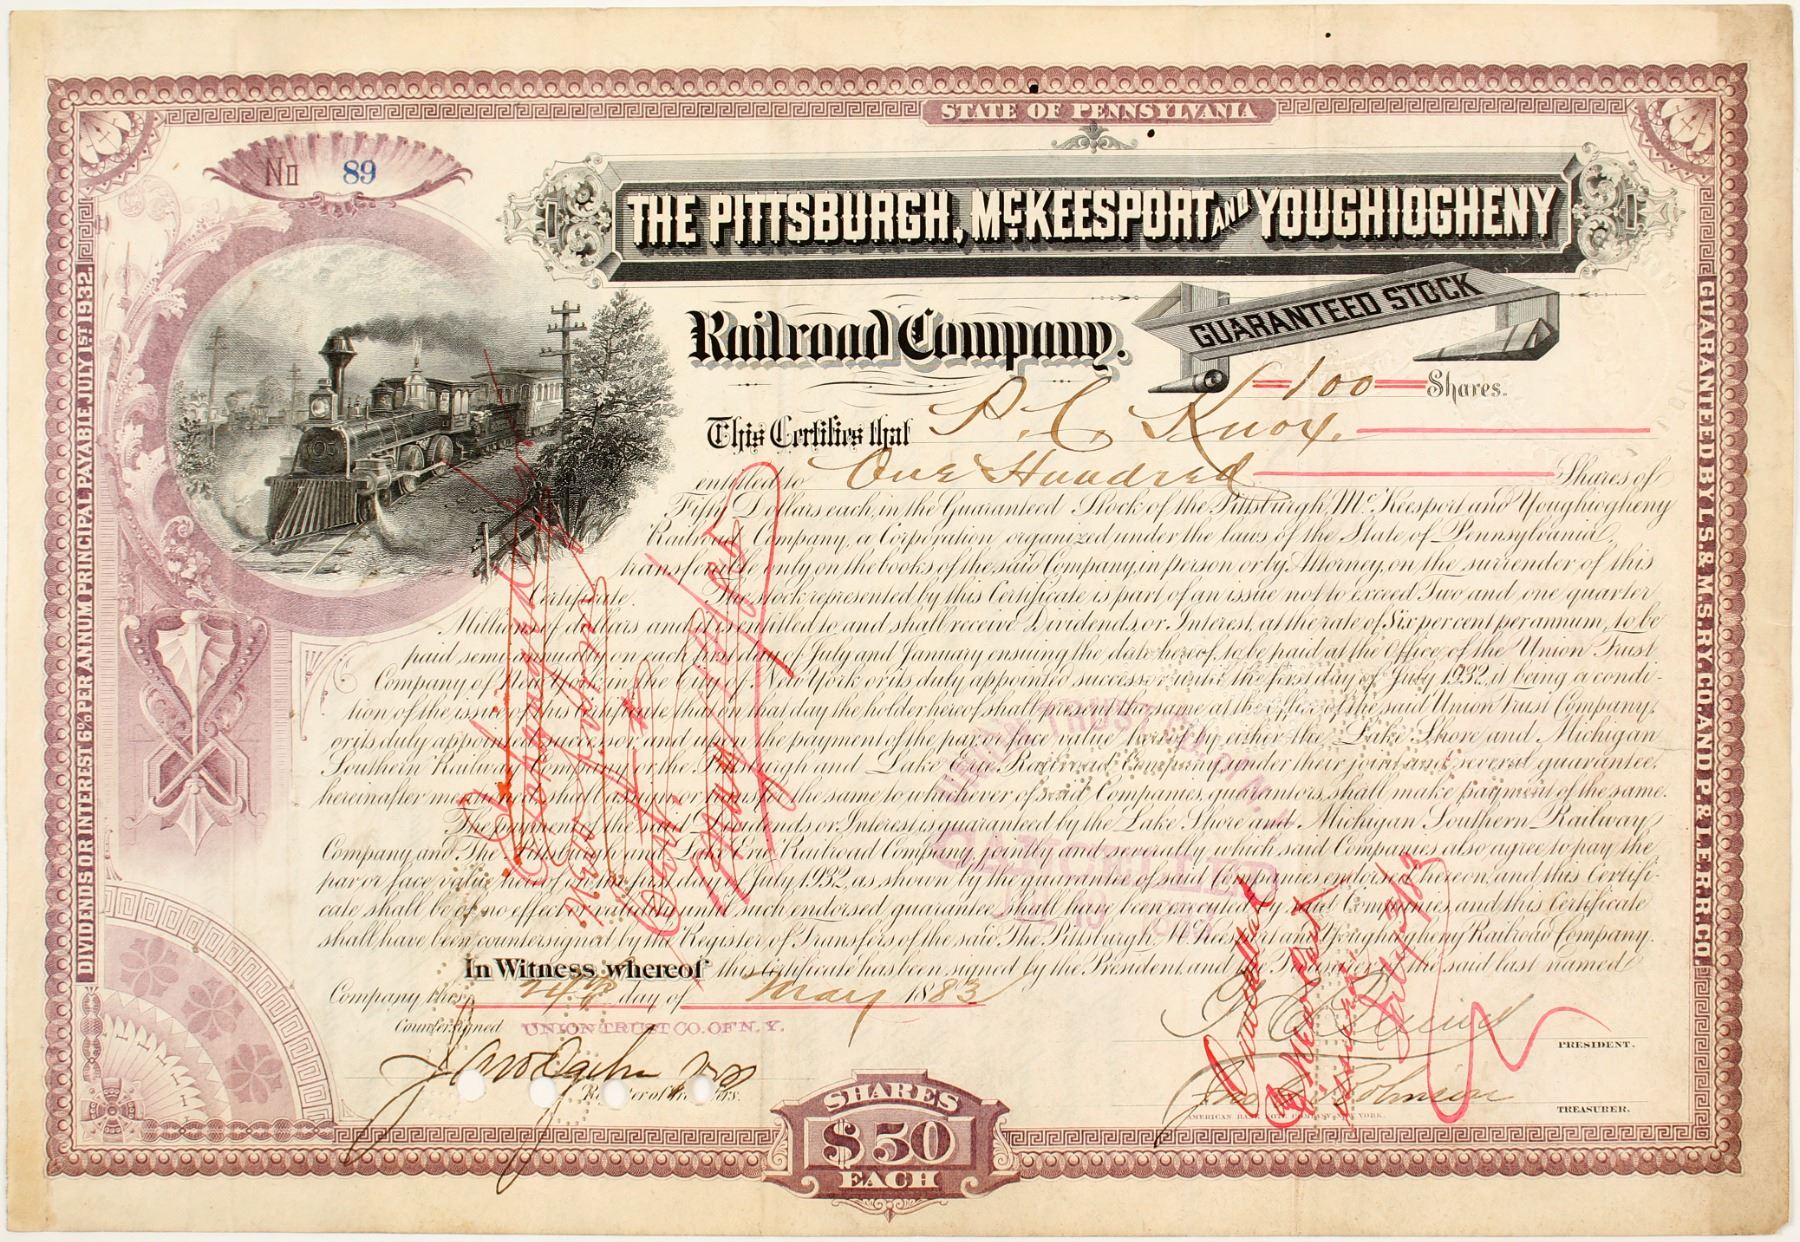 STATE OF PENNSYLVANIA
No 89
THE PITTSBURGH, McKEESPORT AND YOUGHIOGHENY
Railroad Company.
GUARANTEED STOCK
100 Shares.
This Certifies that P. C. Knox.
entitled to One Hundred Shares of
Fifty Dollars each, in the Guaranteed Stock of the Pittsburgh, McKeesport and Youghiogheny
Railroad Company, a Corporation organized under the laws of the State of Pennsylvania,
transferable only on the books of the said Company, in person or by Attorney, on the surrender of this
Certificate. The stock represented by this Certificate is part of an issue not to exceed Two and one quarter
Millions of dollars and is entitled to and shall receive Dividends, or Interest, at the rate of Six per cent per annum, to be
paid semi-annually on each first day of July and January ensuing the date hereof, to be paid at the Office of the Union Trust
Company of New York, in the City of New York or its duly appointed successor until the first day of July 1932, it being a condi-
tion of the issue of this certificate that on that day the holder hereof shall present the same at the office of the said Union Trust Company,
or its duly appointed successor and upon the payment of the par or face value hereof by either the Lake Shore and Michigan
Southern Railway Company or the Pittsburgh and Lake Erie Railroad Company, under their joint and several guarantee,
hereinafter mentioned shall assign or transfer the same to whichever of said Companies, guarantors, shall make payment of the same.
The payment of the said Dividends or Interest is guaranteed by the Lake Shore and Michigan Southern Railway
Company, and The Pittsburgh and Lake Erie Railroad Company, jointly and severally, which said Companies also agree to pay the
par or face value hereof on the first day of July 1932, as shown by the guarantee of said Companies endorsed hereon, and this Certifi-
cate shall be of no effect or validity until such endorsed guarantee shall have been executed by said Companies, and this Certificate
shall have been countersigned by the Register of Transfers of the said The Pittsburgh, McKeesport and Youghiogheny Railroad Company.
In Witness whereof this Certificate has been signed by the President, and the Treasurer of the said last named
Company this 24th day of May 1883
Countersigned UNION TRUST CO. OF N.Y.
Register of Transfers.
PRESIDENT.
Jno Robinson
TREASURER.
AMERICAN BANK NOTE COMPANY, NEW YORK.
SHARES
$50
EACH
DIVIDENDS OR INTEREST 6% PER ANNUM PRINCIPAL PAYABLE JULY 1ST 1932.
GUARANTEED BY L.S. & M.S. RY. CO. AND P. & L.E. R.R. CO.
UNION TRUST CO. OF N.Y.
CANCELLED
Cancelled